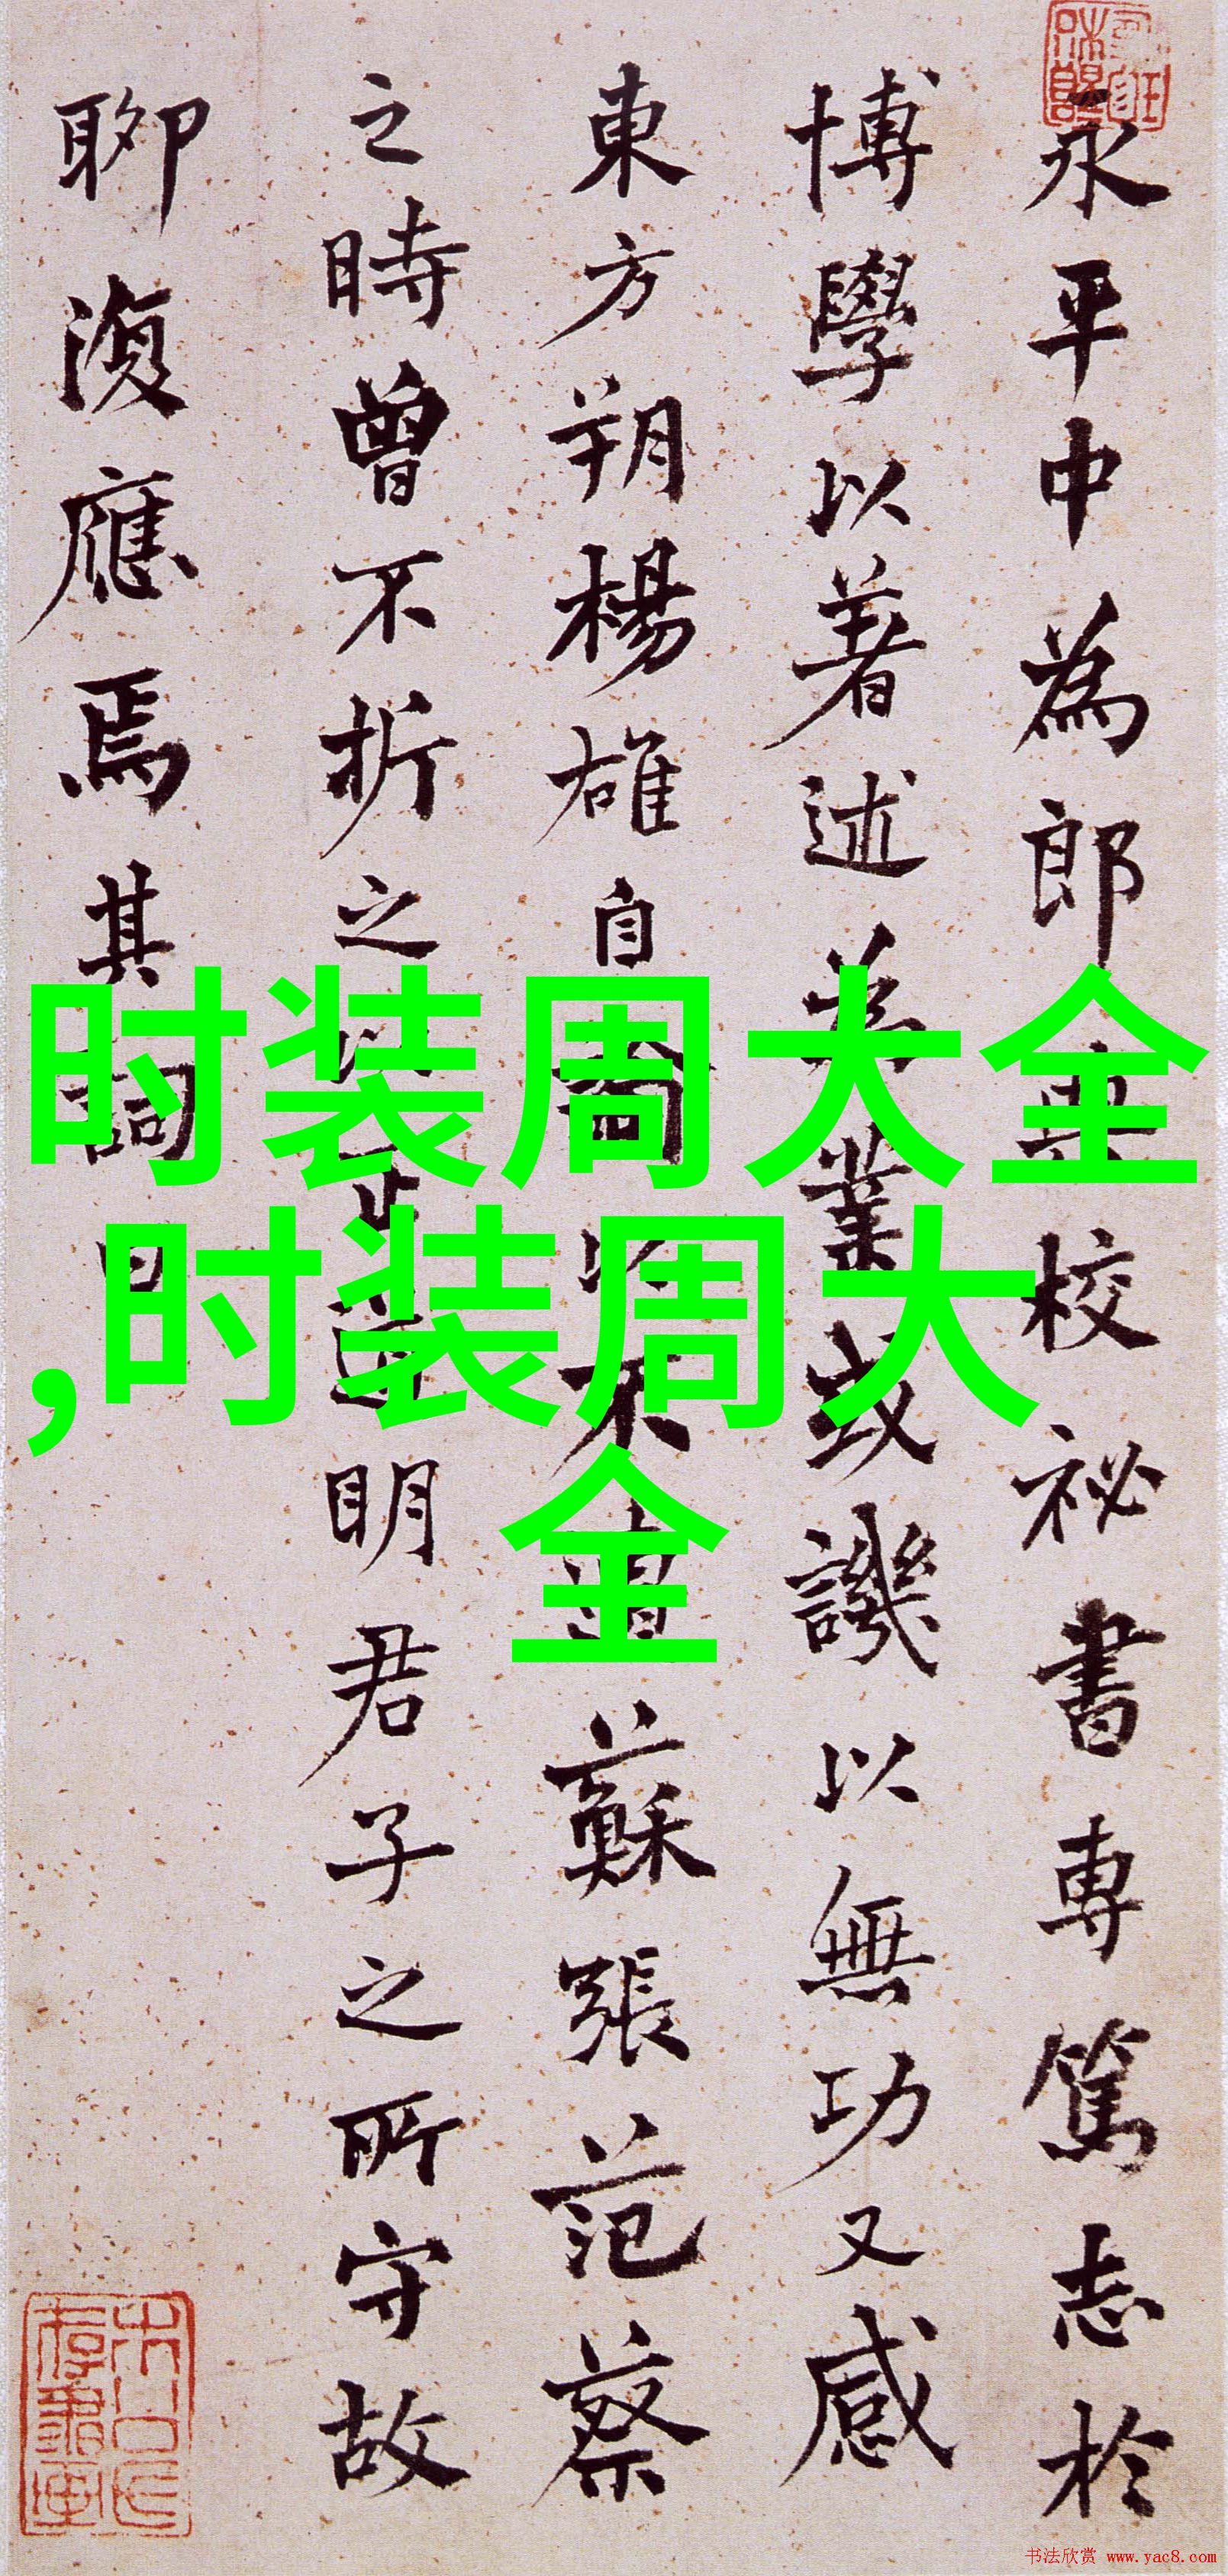 永平中為郎典校祕書專篤志於
博學以著述為業或譏以無功又感
東方朔楊雄自以不遭蘇張范蔡
之時曾不折之以正道明君子之所守故
聊復應焉其詞曰
时装周大全
,时装周大
全
书法欣赏 www.yac8.com